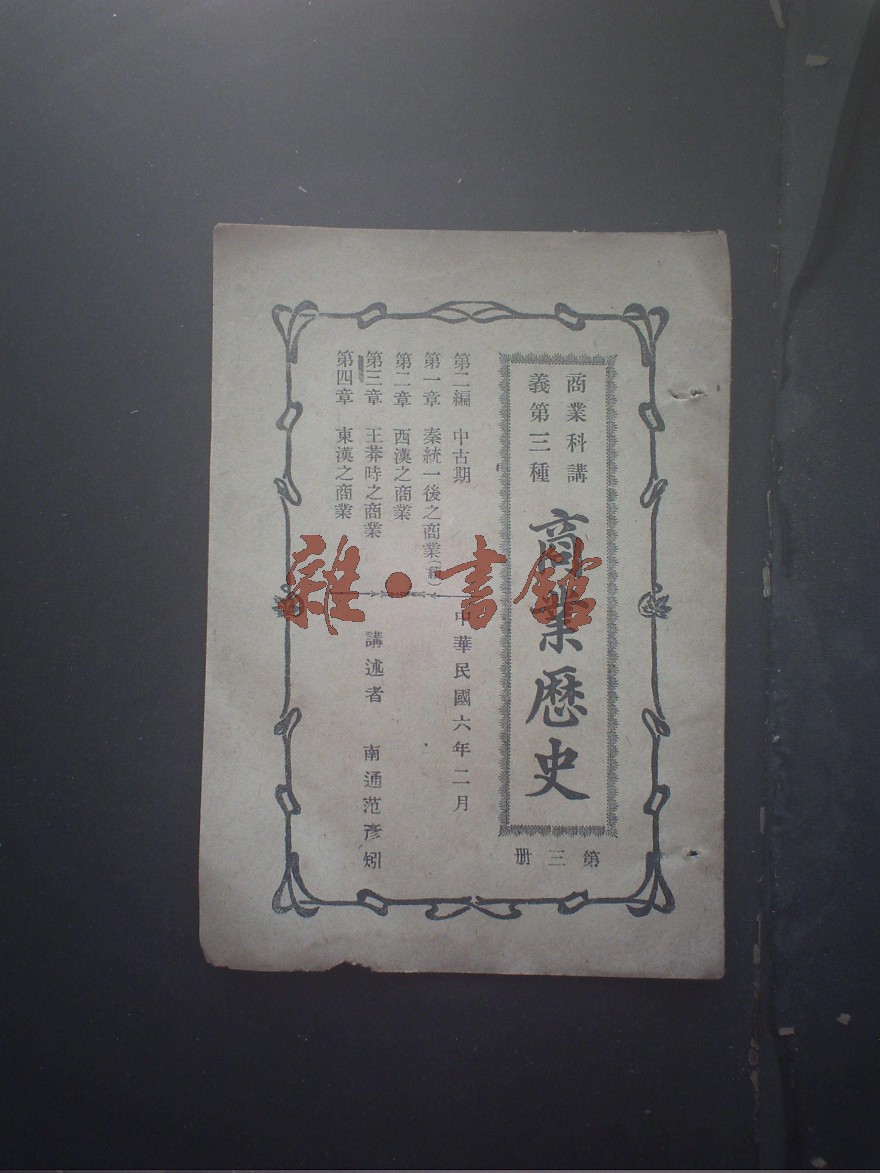 商業科講
義第三種
商業歷史
第三册
第二編　中古期
第一章　秦統一後之商業(續)
第二章　西漢之商業
第三章　王莽時之商業
第四章　東漢之商業
中華民國六年二月
講述者　南通范彥矧
雜·書館